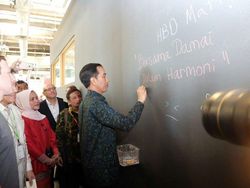 HBD Mat
"Bersama Damai
Dalam Harmoni"